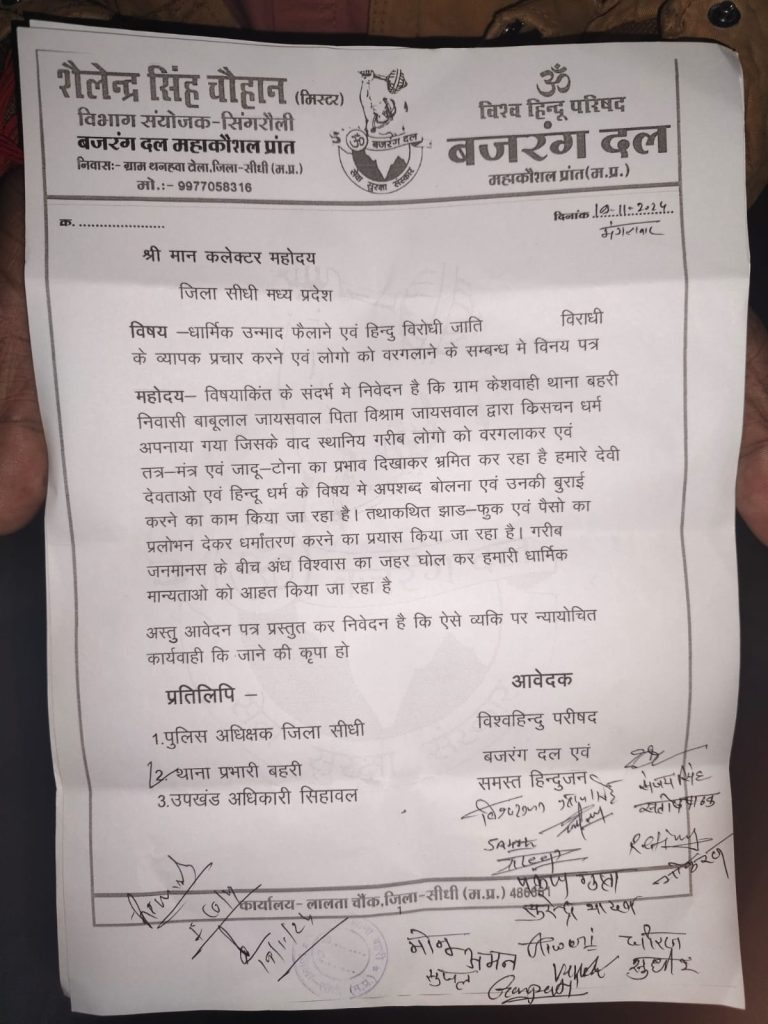 शैलेन्द्र सिंह चौहान (मिस्टर)
विभाग संयोजक-सिंगरौली
बजरंग दल महाकौशल प्रांत
निवासः- ग्राम थनहवा टोला,जिला-सीधी (म.प्र.)
मो.:- 9977058316
ॐ बजरंग दल
सेवा सुरक्षा संस्कार
ॐ
विश्व हिन्दू परिषद
बजरंग दल
महाकौशल प्रांत(म.प्र.)
क. ......................
दिनांक 19-11-2024
मंगलवार
श्री मान कलेक्टर महोदय
जिला सीधी मध्य प्रदेश
विषय –धार्मिक उन्माद फैलाने एवं हिन्दु विरोधी जाति विराधी
के व्यापक प्रचार करने एवं लोगो को वरगलाने के सम्बन्ध मे विनय पत्र
महोदय– विषयाकिंत के संदर्भ मे निवेदन है कि ग्राम केशवाही थाना बहरी
निवासी बाबूलाल जायसवाल पिता विश्राम जायसवाल द्वारा किसचन धर्म
अपनाया गया जिसके वाद स्थानिय गरीब लोगो को वरगलाकर एवं
तत्र–मंत्र एवं जादू–टोना का प्रभाव दिखाकर भ्रमित कर रहा है हमारे देवी
देवताओ एवं हिन्दू धर्म के विषय मे अपशब्द बोलना एवं उनकी बुराई
करने का काम किया जा रहा है। तथाकथित झाड–फुक एवं पैसो का
प्रलोभन देकर धर्मांतरण करने का प्रयास किया जा रहा है। गरीब
जनमानस के बीच अंध विश्वास का जहर घोल कर हमारी धार्मिक
मान्यताओ को आहत किया जा रहा है
अस्तु आवेदन पत्र प्रस्तुत कर निवेदन है कि ऐसे व्यकि पर न्यायोचित
कार्यवाही कि जाने की कृपा हो
प्रतिलिपि –
1.पुलिस अधिक्षक जिला सीधी
2 थाना प्रभारी बहरी
3.उपखंड अधिकारी सिहावल
आवेदक
विश्वहिन्दु परीषद
बजरंग दल एवं
समस्त हिन्दुजन
संजय सिंह
सुरेन्द्र यादव
19/11/24
कार्यालय- लालता चौक,जिला-सीधी (म.प्र.)
अमन
सुधीर